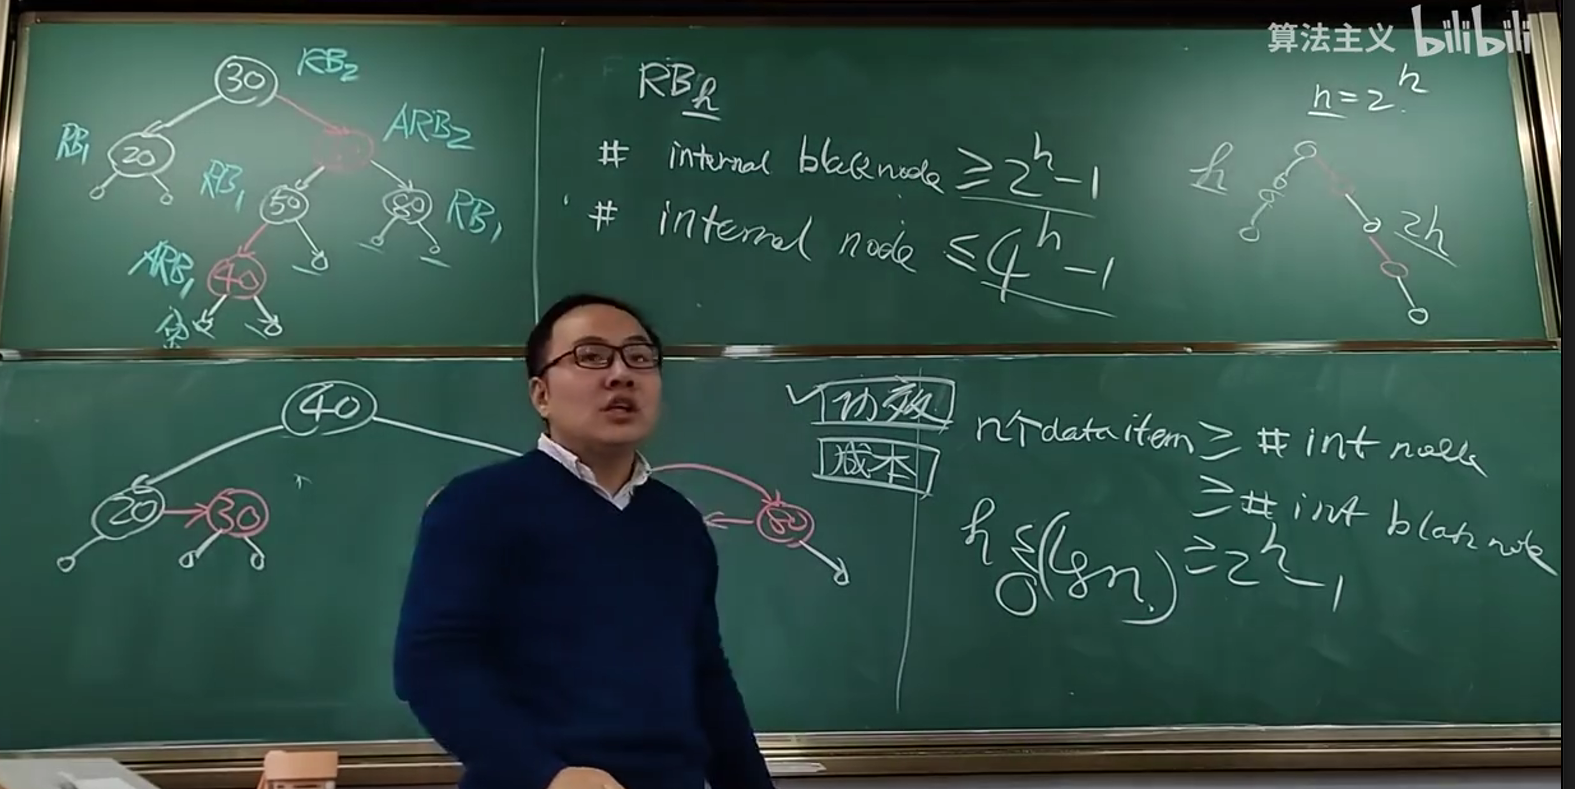 算法主义 bilibili
30 RB₂
RB₁ 20
ARB₂
RB₁ 50
80 RB₁
ARB₁ 40
RBₕ
# internal black node ≥ 2^h - 1
# internal node ≤ 4^h - 1
n = 2^h
h
2h
40
20 30
80
功效
成本
n个 data item ≥ # int node
≥ # int black node
≥ 2^h - 1
h ≤ O(lg n)